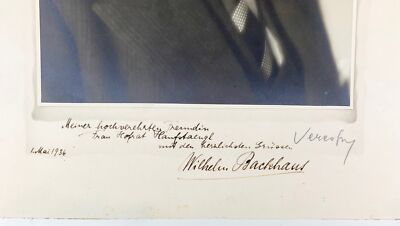 Meiner hochverehrten Freundin
Frau Hofrat Hanfstaengl
mit den herzlichsten Grüssen
1. Mai 1934
Wilhelm Backhaus